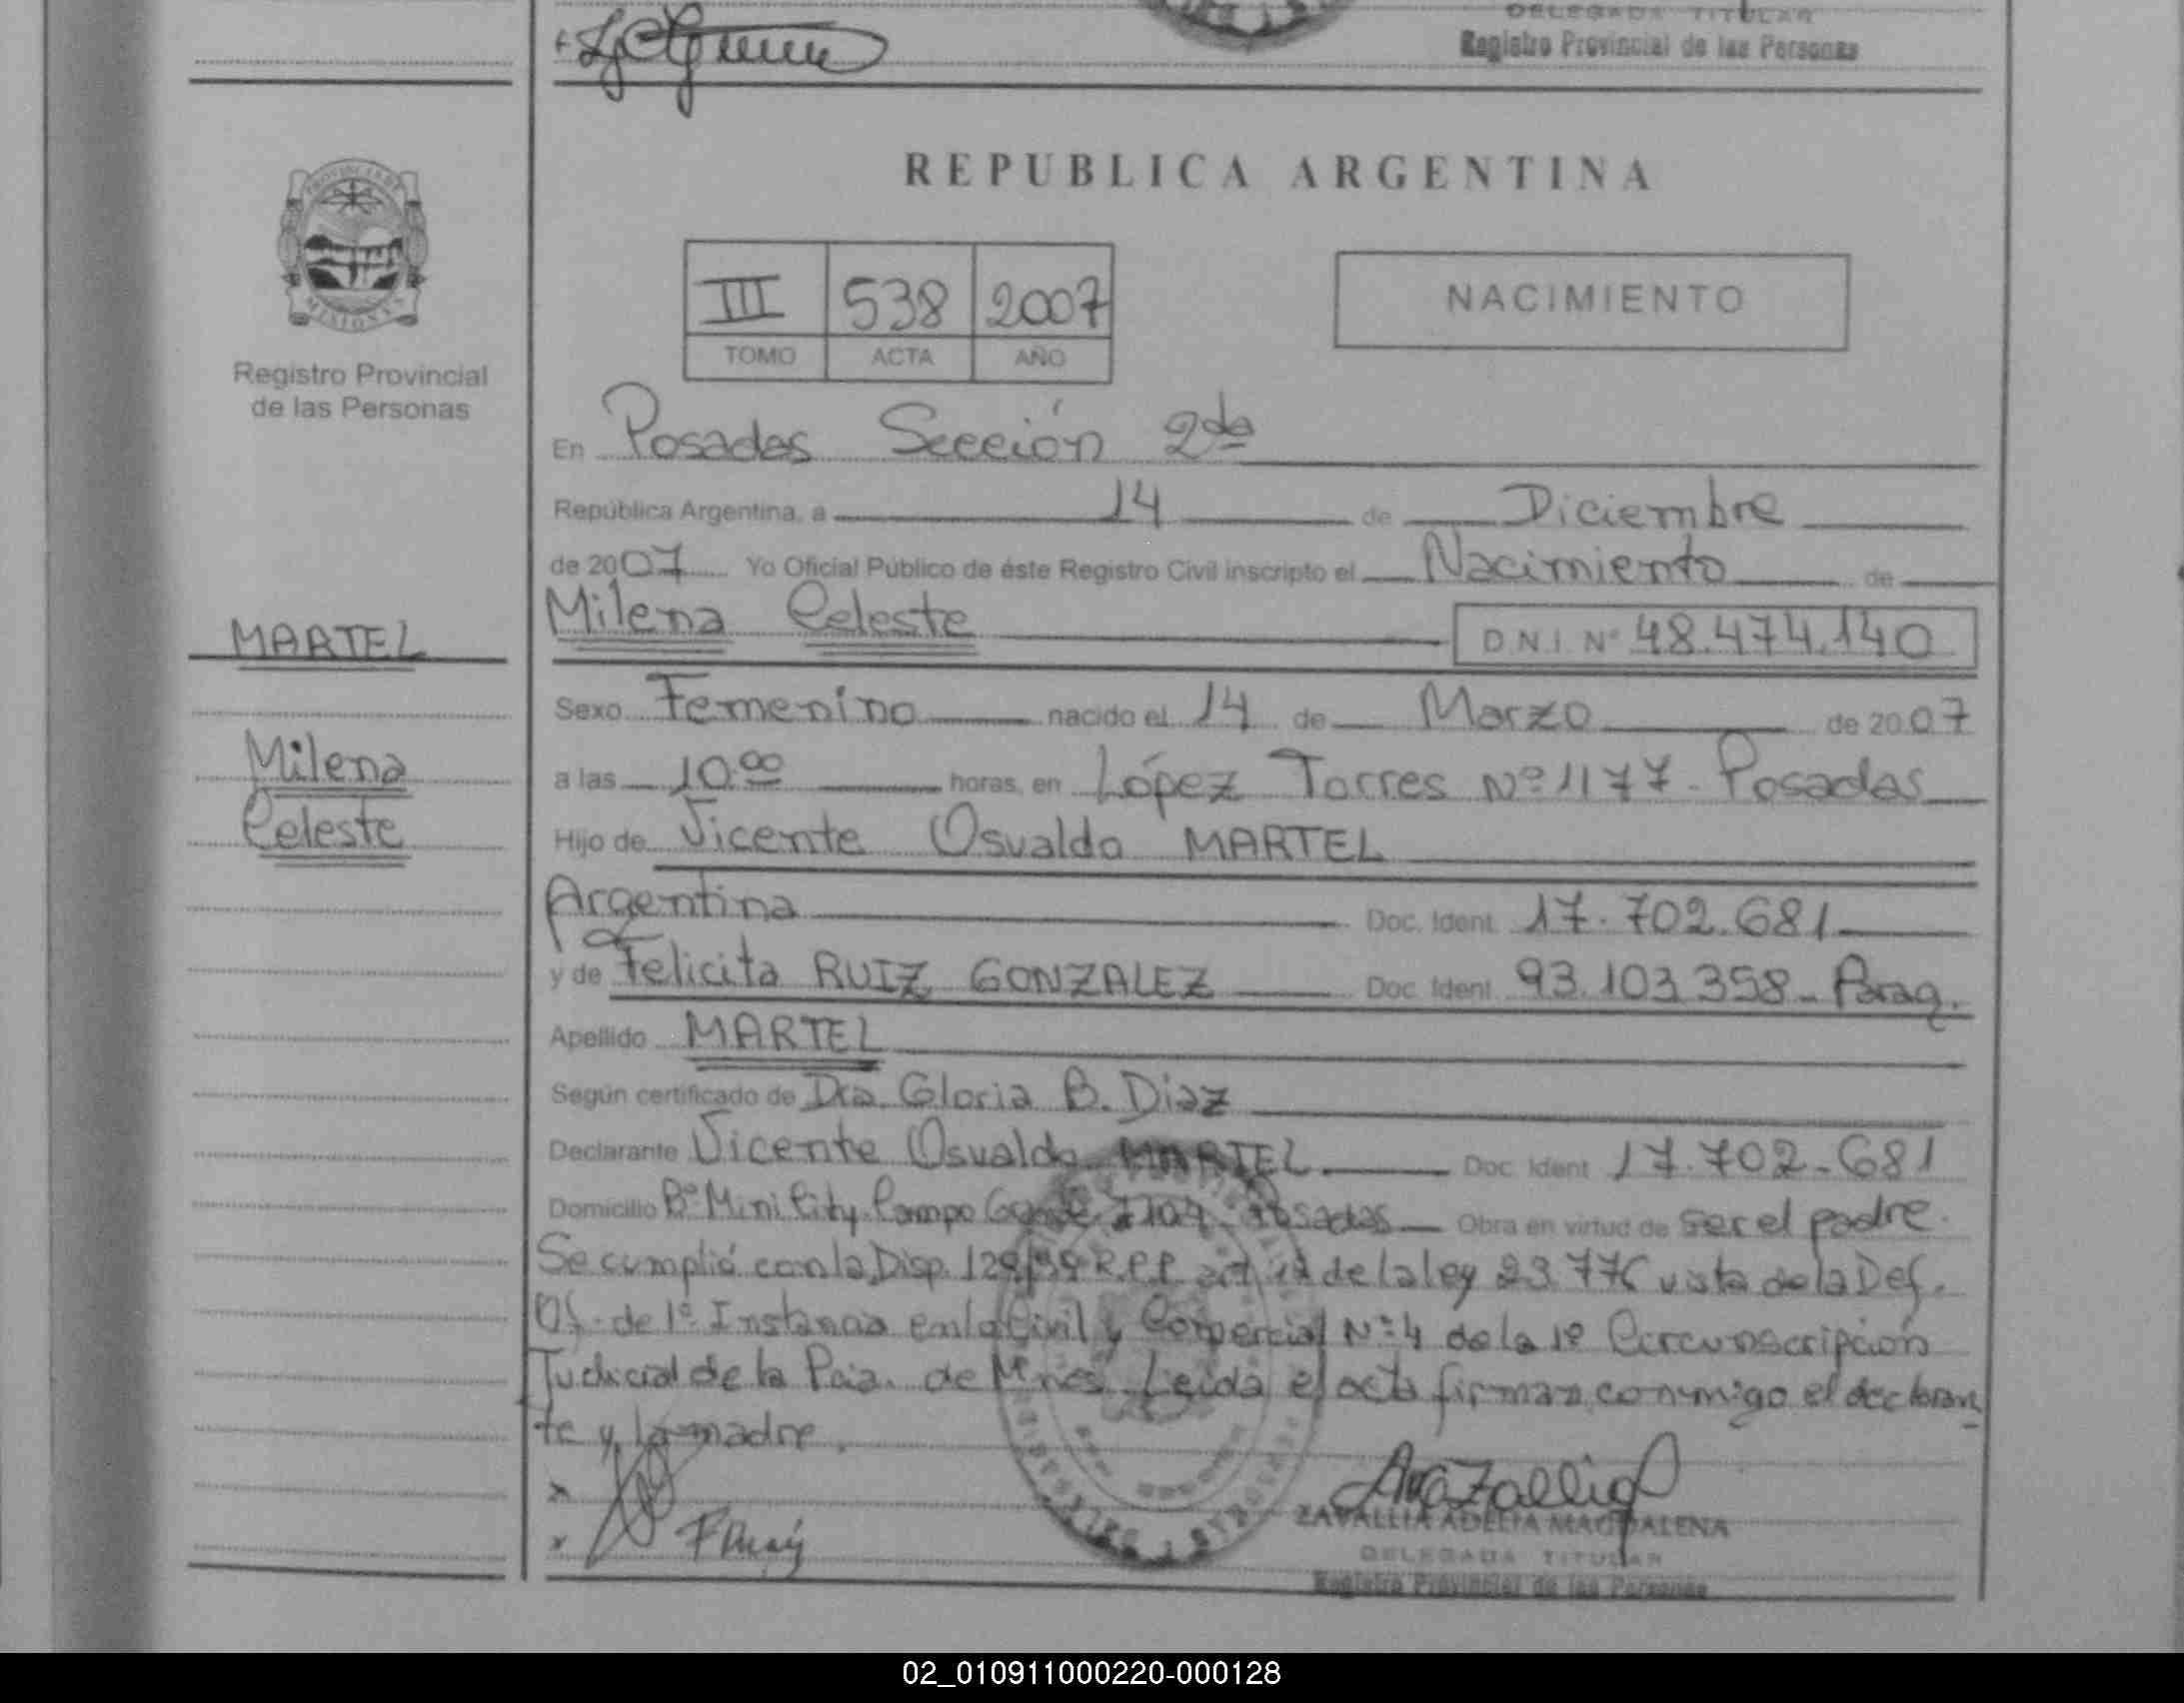 DELEGADA TITULAR
Registro Provincial de las Personas
REPUBLICA ARGENTINA
PROVINCIA DE
MISIONES
Registro Provincial
de las Personas
III 538 2007
TOMO ACTA AÑO
NACIMIENTO
En Posadas Sección 2da
República Argentina, a 14 de Diciembre
de 2007 Yo Oficial Público de éste Registro Civil inscripto el Nacimiento de
MARTEL
Milena Celeste D.N.I. Nº 48.474.140
Sexo Femenino nacido el 14 de Marzo de 2007
Milena
Celeste
a las 10:00 horas, en López Torres Nº 1177 - Posadas
Hijo de Vicente Osvaldo MARTEL
Argentina Doc. Ident. 17.702.681
y de Felicita RUIZ GONZALEZ Doc. Ident. 93.103.358 - Parag.
Apellido MARTEL
Según certificado de Dra. Gloria B. Diaz
Declarante Vicente Osvaldo MARTEL Doc. Ident 17.702.681
Domicilio Bº Mini City Campo Posadas Obra en virtud de ser el padre.
Se cumplió con la Disp. de la ley 23.776 vista de la Def.
Of. de 1º Instancia en lo Civil y Comercial Nº 4 de la 1º Circunscripción
Judicial de la Pcia. de Mnes. Leida el acta firman conmigo el declaran
te y la madre.
ZAVALLIA ADELIA MAGDALENA
DELEGADA TITULAR
Registro Provincial de las Personas
02_010911000220-000128